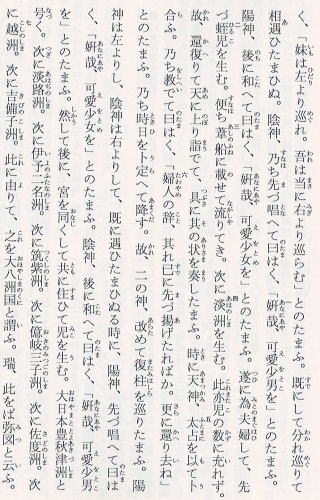 く、「妹は左より巡れ。吾は当に右より巡らむ」とのたまふ。既にして分れ巡りて
相遇ひたまひぬ。陰神、乃ち先づ唱へて曰はく、「妍哉、可愛少男を」とのたまふ。
陽神、後に和へて曰はく、「妍哉、可愛少女を」とのたまふ。遂に為夫婦して、先
づ蛭児を生む。便ち葦船に載せて流りてき。次に淡洲を生む。此亦児の数に充れず。
故、還復りて天に上り詣でて、具に其の状を奏したまふ。時に天神、太占を以て卜
合ふ。乃ち教でて曰はく、「婦人の辞、其れ已に先づ揚げたればか。更に還り去ね」
とのたまふ。乃ち時日を卜へて降す。故、二の神、改めて復柱を巡りたまふ。陽
神は左よりし、陰神は右よりして、既に遇ひたまひぬる時に、陽神、先づ唱へて曰は
く、「妍哉、可愛少女を」とのたまふ。陰神、後に和へて曰はく、「妍哉、可愛少男
を」とのたまふ。然して後に、宮を同くして共に住ひて児を生む。大日本豊秋津洲と
号く。次に淡路洲。次に伊予二名洲。次に筑紫洲。次に億岐三子洲。次に佐度洲。次
に越洲。次に吉備子洲。此に由りて、之を大八洲国と謂ふ。瑞、此をば弥図と云ふ。